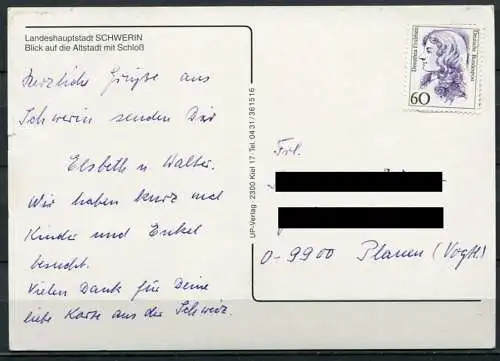 Landeshauptstadt SCHWERIN
Blick auf die Altstadt mit Schloß
Herzliche Grüße aus
Schwerin senden Dir
Elsbeth u. Walter.
Wir haben kurz mal
Kinder und Enkel
besucht.
Vielen Dank für Deine
liebe Karte aus der Schweiz.
UP-Verlag · 2300 Kiel 17 · Tel. 0431/361516
Dorothea Erxleben
Deutsche Bundespost
60
Frl.
O-9900 Plauen (Vogtl.)